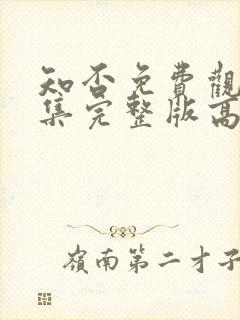 知否免費觀
集完整版高
嶺南第二才子